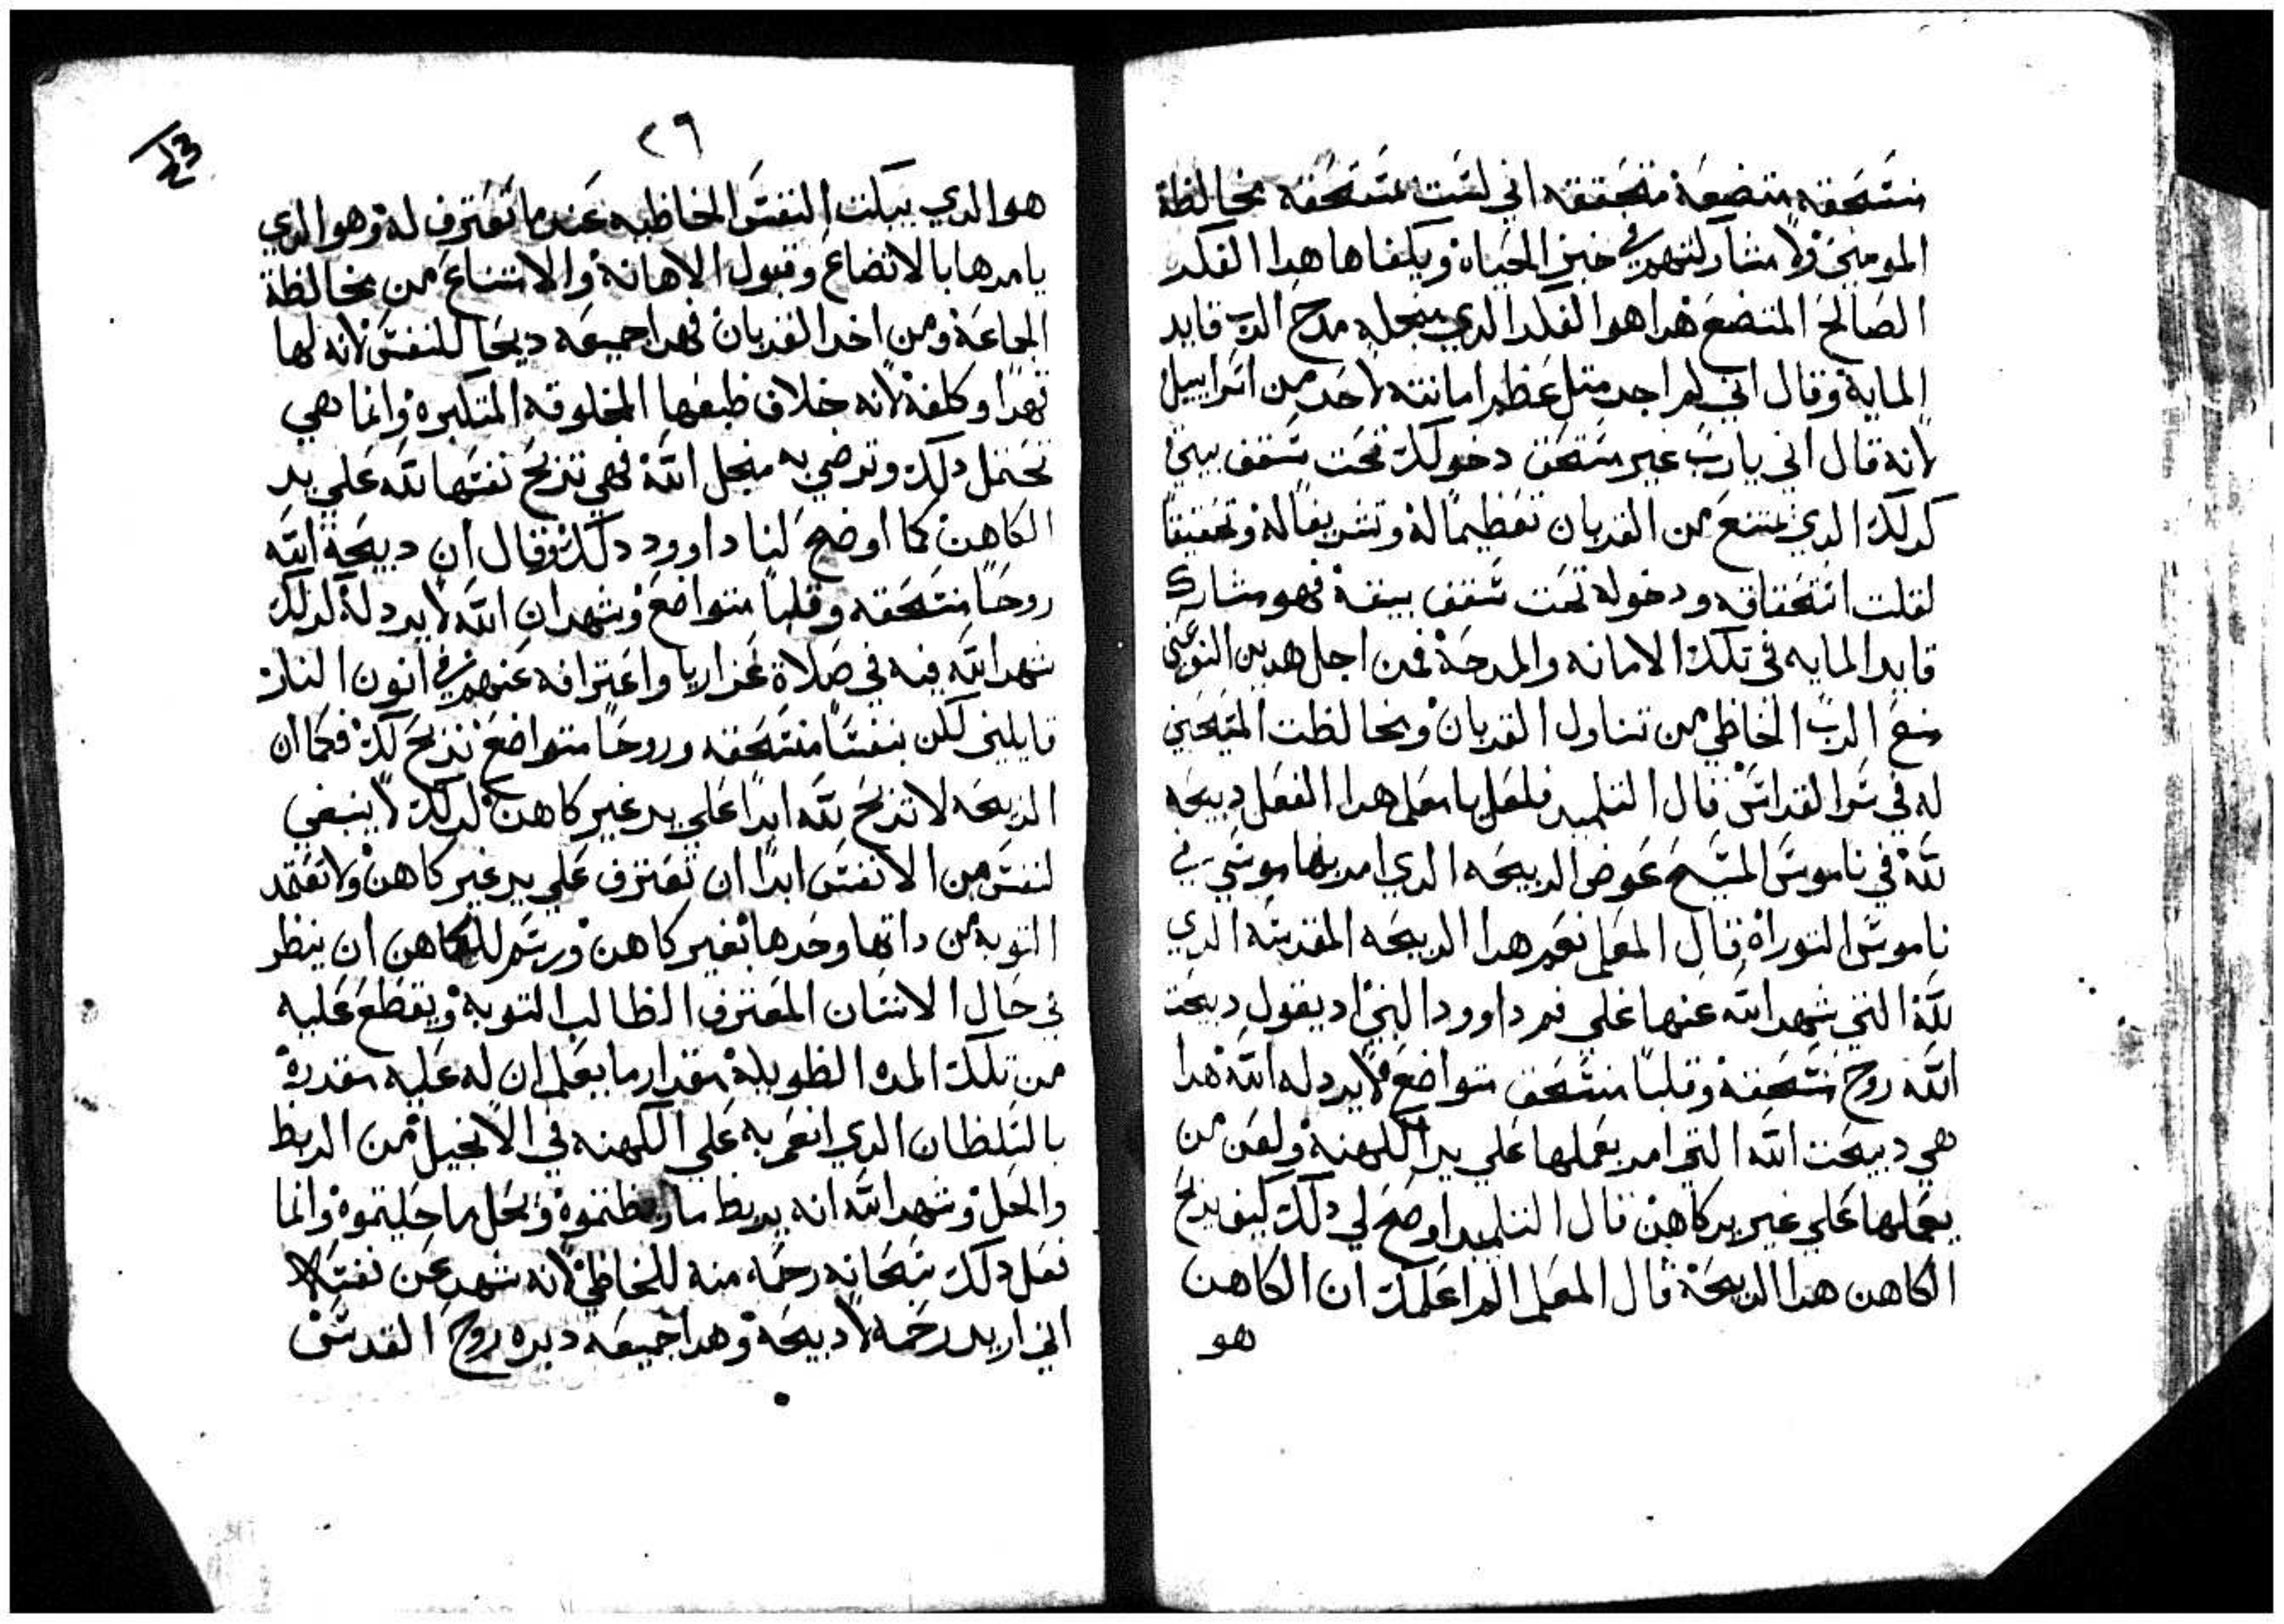 منسحقه متضعة متحققه اني لست مستحقه مخالطة
المومنين ولا مشاركتهم في خبز الحياة ويكفاها هدا الفكر
الصالح المتضع هدا هو الفكر الدي منجله مدح الرب قايد
الماية وقال اني لم اجد مثل عظم امانته لاحد من اسراييل
لانه قال اني يارب غير مستحق دخولك تحت سقف بيتي
كدلك الدي يمتنع من القربان تعظيمًا له وتشريفًا له وتحقيقًا
لقلت استحقاقه ودخوله تحت سقف بيته فهو مشارك
قايد المايه في تلك الامانه والمدحة فمن اجل هدين النوعين
منع الرب الخاطي من تناول القربان ومخالطت المسيحين
له في سر القداس قال التلميد فلعل يامعلم هدا الفعل دبيحه
لله في ناموس المسيح عوض الدبيحه الدي امر بها موسي في
ناموس التوراة قال المعلم نعم هدا الدبيحه المقدسه الدي
لله التي شهد الله عنها علي فم داوود النبي اد يقول دبيحت
الله روح منسحقة وقلبًا منسحق متواضع لا يردله الله هدا
هي دبيحت الله التي امر بعملها علي يد الكهنة ولعن من
يعملها علي غير يد كاهن قال التلميد اوضح لي دلك كيف يدبح
الكاهن هدا الدبيحة قال المعلم الم اعلمك ان الكاهن
هو
٢٦
123
هو الدي يبكت النفس الخاطيه عند ما تعترف له وهو الدي
يامرها بالاتضاع وقبول الاهانة والامتناع من مخالطة
الجماعة ومن اخد القربان فهدا جميعه دبحًا للنفس لانه لها
قهرًا وكلفة لانه خلاف طبعها المخلوقه المتكبره وانما هي
تحتمل دلك وترضي به منجل الله فهي تدبح نفسها لله علي يد
الكاهن كما اوضح لنا داوود دلك وقال ان دبيحة الله
روحًا منسحقه وقلبًا متواضع وشهد ان الله لا يردله لدلك
شهد الله فيه في صلاة عزاريا واعترافه عنهم في اتون النار
قايلين لكن بنفسًا منسحقه وروحًا متواضع ندبح لك فكما ان
الدبيحه لا تدبح لله ابدًا علي يد غير كاهن لدلك لا ينبغي
لنفس من الانفس ابدًا ان تعترف علي يد غير كاهن ولا تعتمد
التوبه من داتها وحدها بغير كاهن ورسم للكاهن ان ينظر
في حال الانسان المعترف الطالب التوبة ويقطع عليه
من تلك المده الطويلة مقدار ما يعلم ان له عليه مقدرة
بالسلطان الدي انعم به علي الكهنه في الانجيل من الربط
والحل وشهد الله انه يربط ما ربطتموه ويحل ما حليتموه وانما
فعل دلك سبحانه رحمه منه للخاطي لانه شهد عن نفسه
اني اريد رحمه لا دبيحة وهدا جميعه دبره روح القدس